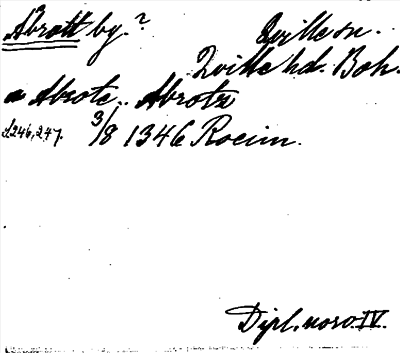 Abrott by.? Qville sn.
Qville hd. Boh.
a Abrote.. Abrotr
s246,247. 3/8 1346 Rocim.
Dipl. norv. IV.